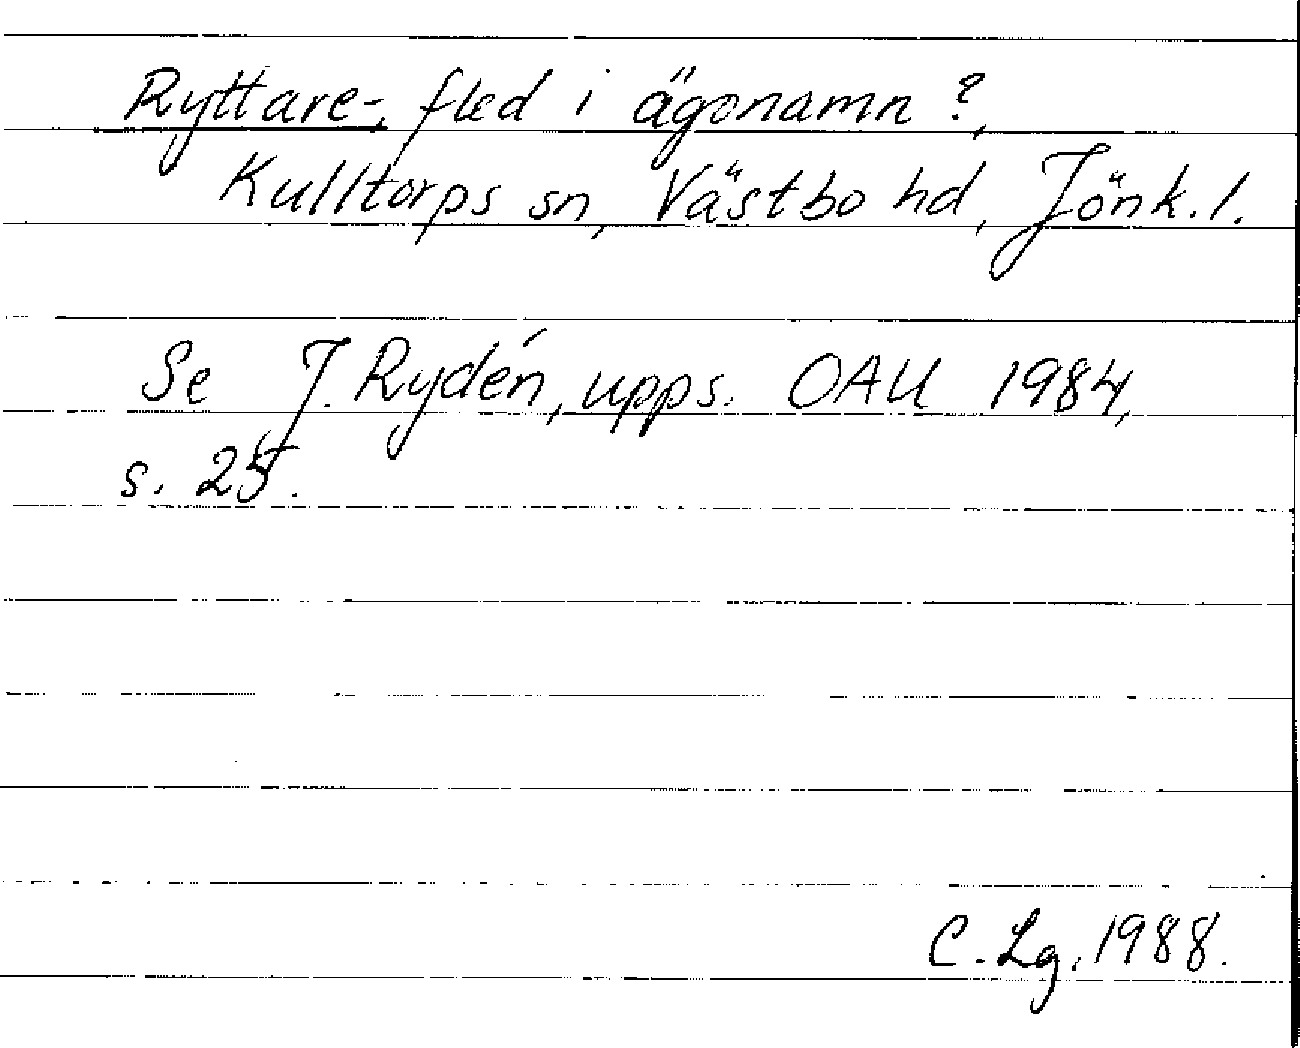 Ryttare-, fled i ägonamn?,
Kulltorps sn, Västbo hd, Jönk. l.
Se J. Rydén, upps. OAU 1984,
s. 25.
C. Lg. 1988.